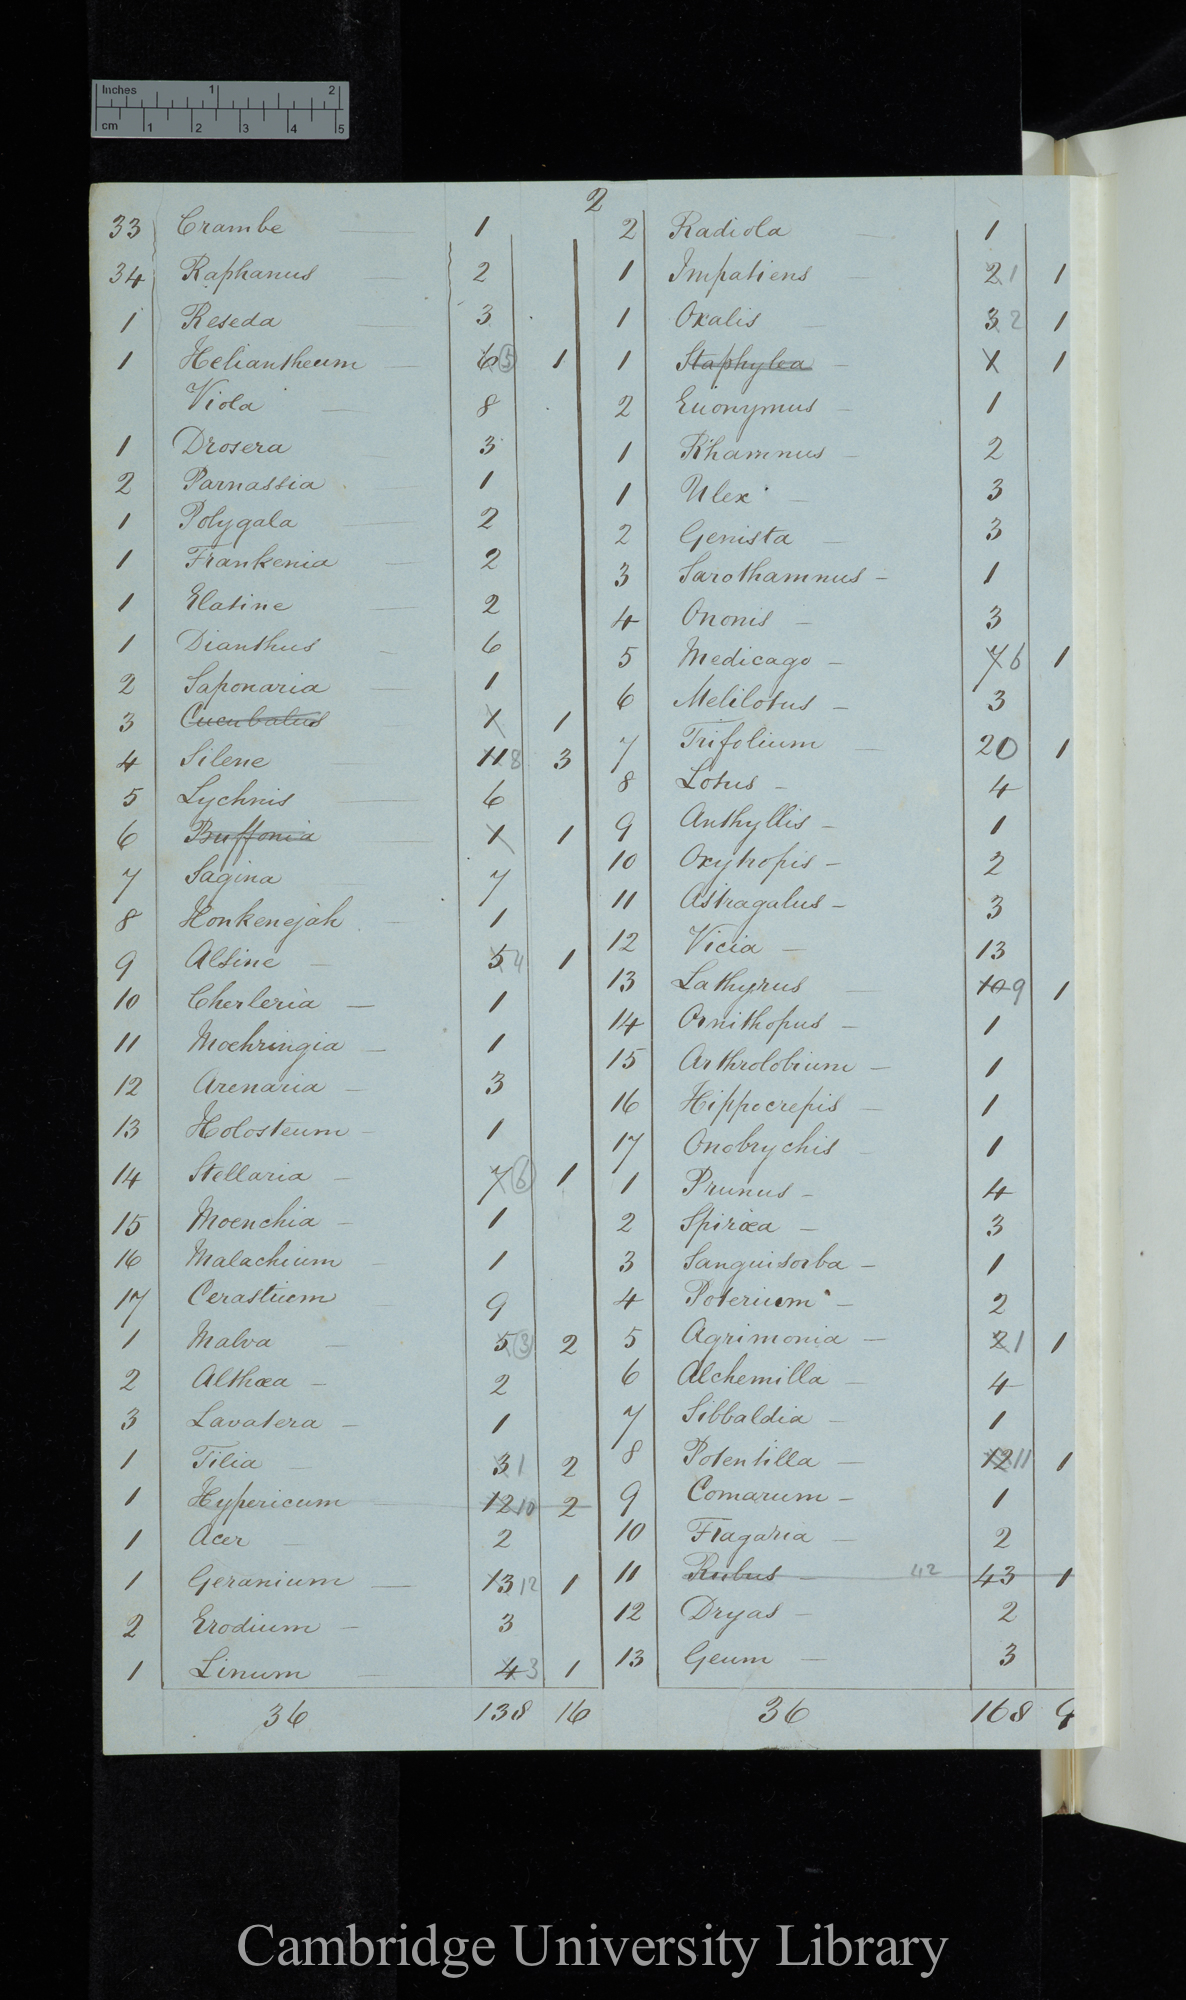 Inches 1 2
cm 1 2 3 4 5
2
33 Crambe 1
34 Raphanus 2
1 Reseda 3
1 Heliantheum 6 5 1
Viola 8
1 Drosera 3
2 Parnassia 1
1 Polygala 2
1 Frankenia 2
1 Elatine 2
1 Dianthus 6
2 Saponaria 1
3 Cucubalus 1 1
4 Silene 11 8 3
5 Lychnis 6
6 Buffonia 1 1
7 Sagina 7
8 Honkenejah 1
9 Alsine 5 4 1
10 Cherleria — 1
11 Moehringia — 1
12 Arenaria — 3
13 Holosteum — 1
14 Stellaria — 7 6 1
15 Moenchia — 1
16 Malachium — 1
17 Cerastium 9
1 Malva — 5 3 2
2 Althæa — 2
3 Lavatera — 1
1 Tilia — 3 1 2
1 Hypericum — 12 10 2
1 Acer — 2
1 Geranium — 13 12 1
2 Erodium — 3
1 Linum — 4 3 1
36 138 16
2 Radiola — 1
1 Impatiens — 2 1 1
1 Oxalis — 3 2 1
1 Staphylea — 1 1
2 Euonymus — 1
1 Rhamnus — 2
1 Ulex — 3
2 Genista — 3
3 Sarothamnus — 1
4 Ononis — 3
5 Medicago — 7 6 1
6 Melilotus — 3
7 Trifolium — 20 1
8 Lotus — 4
9 Anthyllis — 1
10 Oxytropis — 2
11 Astragalus — 3
12 Vicia — 13
13 Lathyrus — 10 9 1
14 Ornithopus — 1
15 Arthrolobium — 1
16 Hippocrepis — 1
17 Onobrychis — 1
1 Prunus — 4
2 Spiræa — 3
3 Sanguisorba — 1
4 Poterium — 2
5 Agrimonia — 2 1 1
6 Alchemilla — 4
7 Sibbaldia — 1
8 Potentilla — 12 11 1
9 Comarum — 1
10 Fragaria — 2
11 Rubus — 42 43 1
12 Dryas — 2
13 Geum — 3
36 168 9
Cambridge University Library